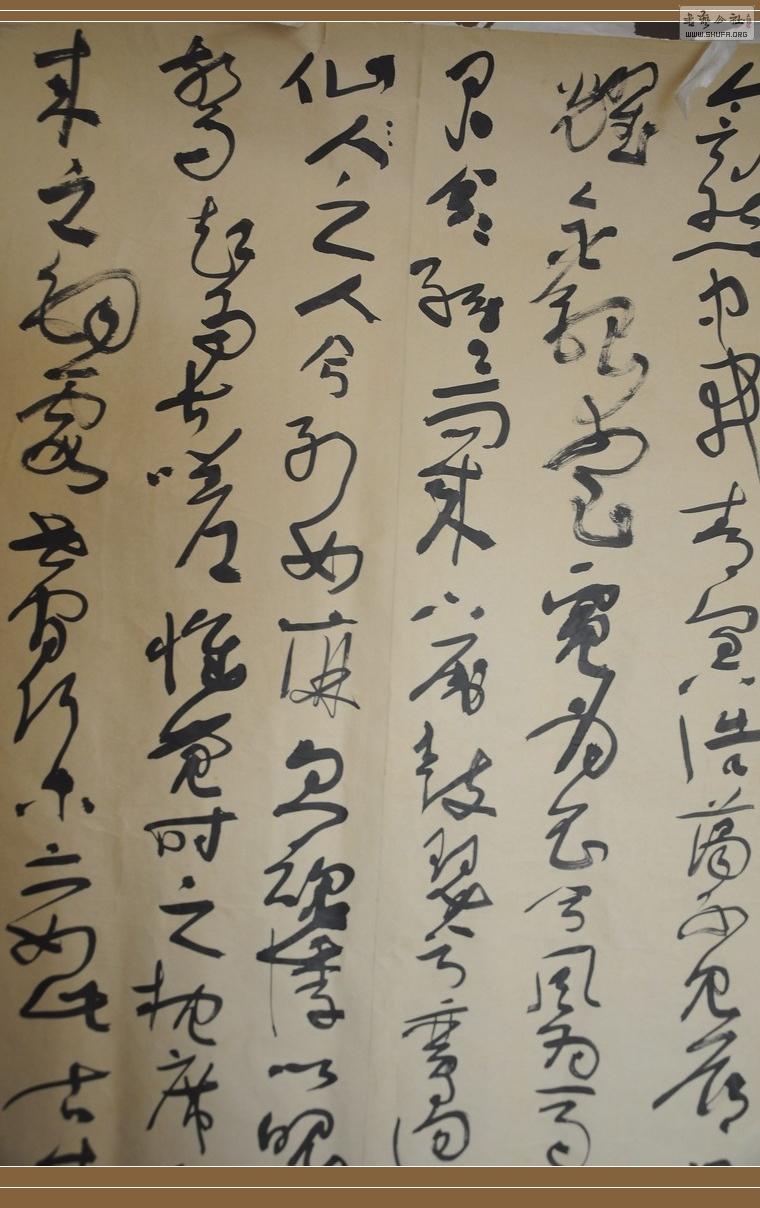 訇然中開青冥浩蕩不見底
耀金銀臺霓為衣兮風為馬
君兮紛々而来下虎鼓瑟兮鸞回
仙人之人兮列如麻忽魂悸以魄
驚起而長嗟惟覺時之枕席
来之烟霞世間行樂亦如此古来
WWW.SHUFA.ORG